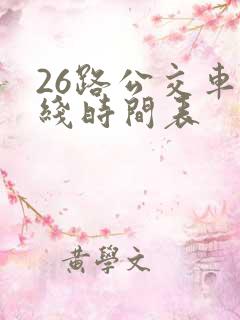 26路公交車
綫時間表
黄學文